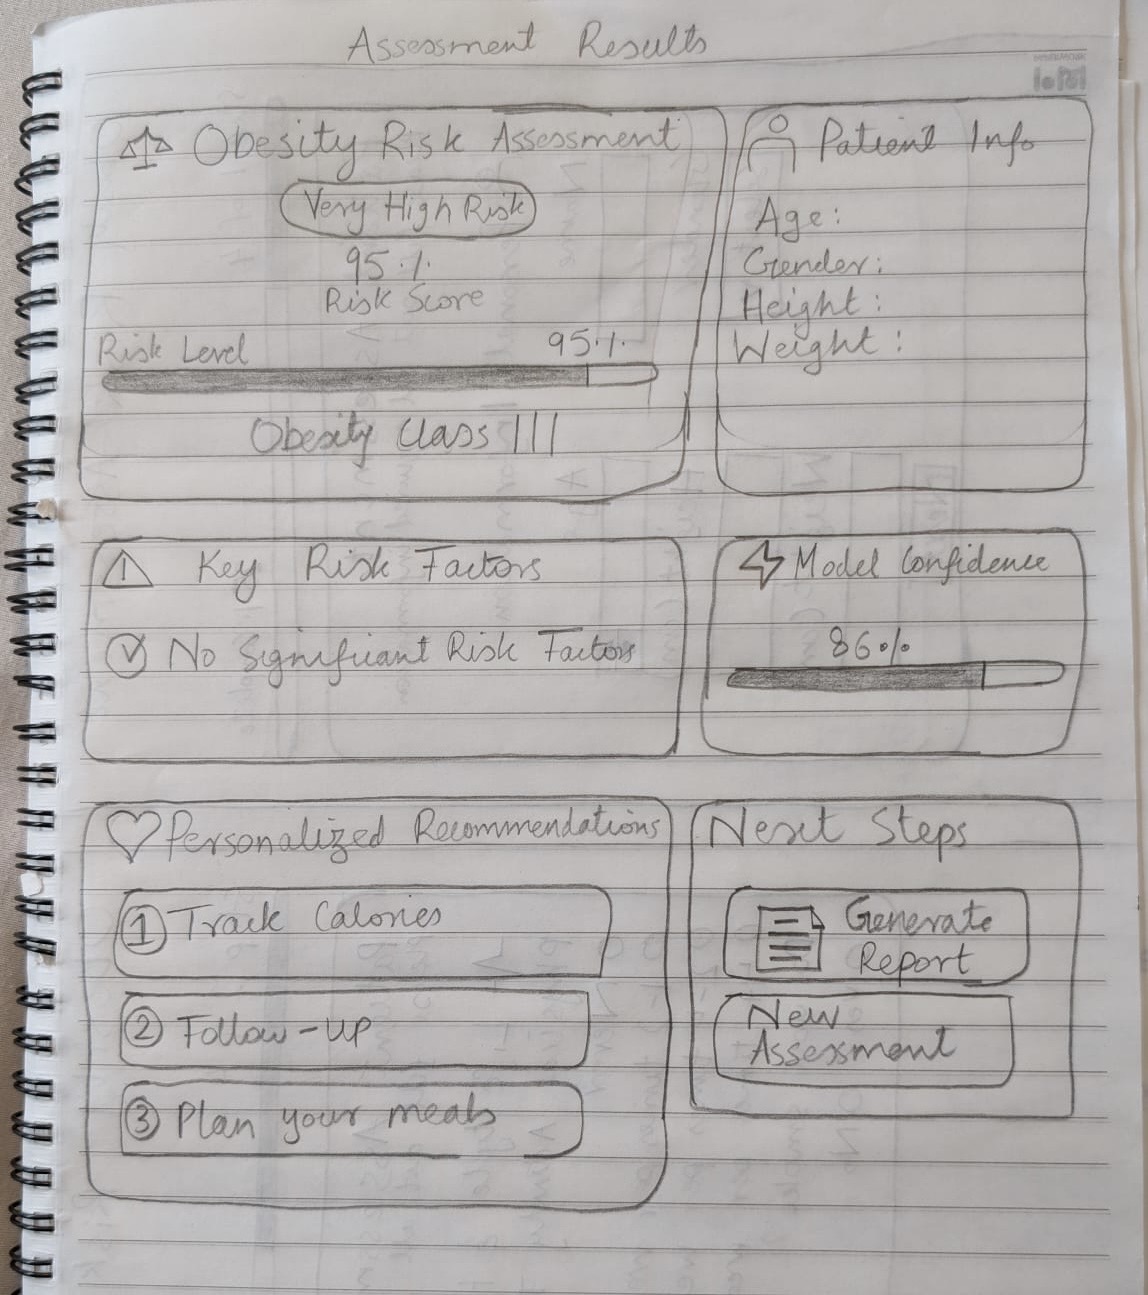 Assessment Results
Obesity Risk Assessment
Very High Risk
95%
Risk Score
Risk Level 95%
Obesity Class III
Patient Info
Age:
Gender:
Height:
Weight:
Key Risk Factors
No Significant Risk Factors
Model Confidence
86%
Personalized Recommendations
1 Track Calories
2 Follow-up
3 Plan your meals
Next Steps
Generate
Report
New
Assessment